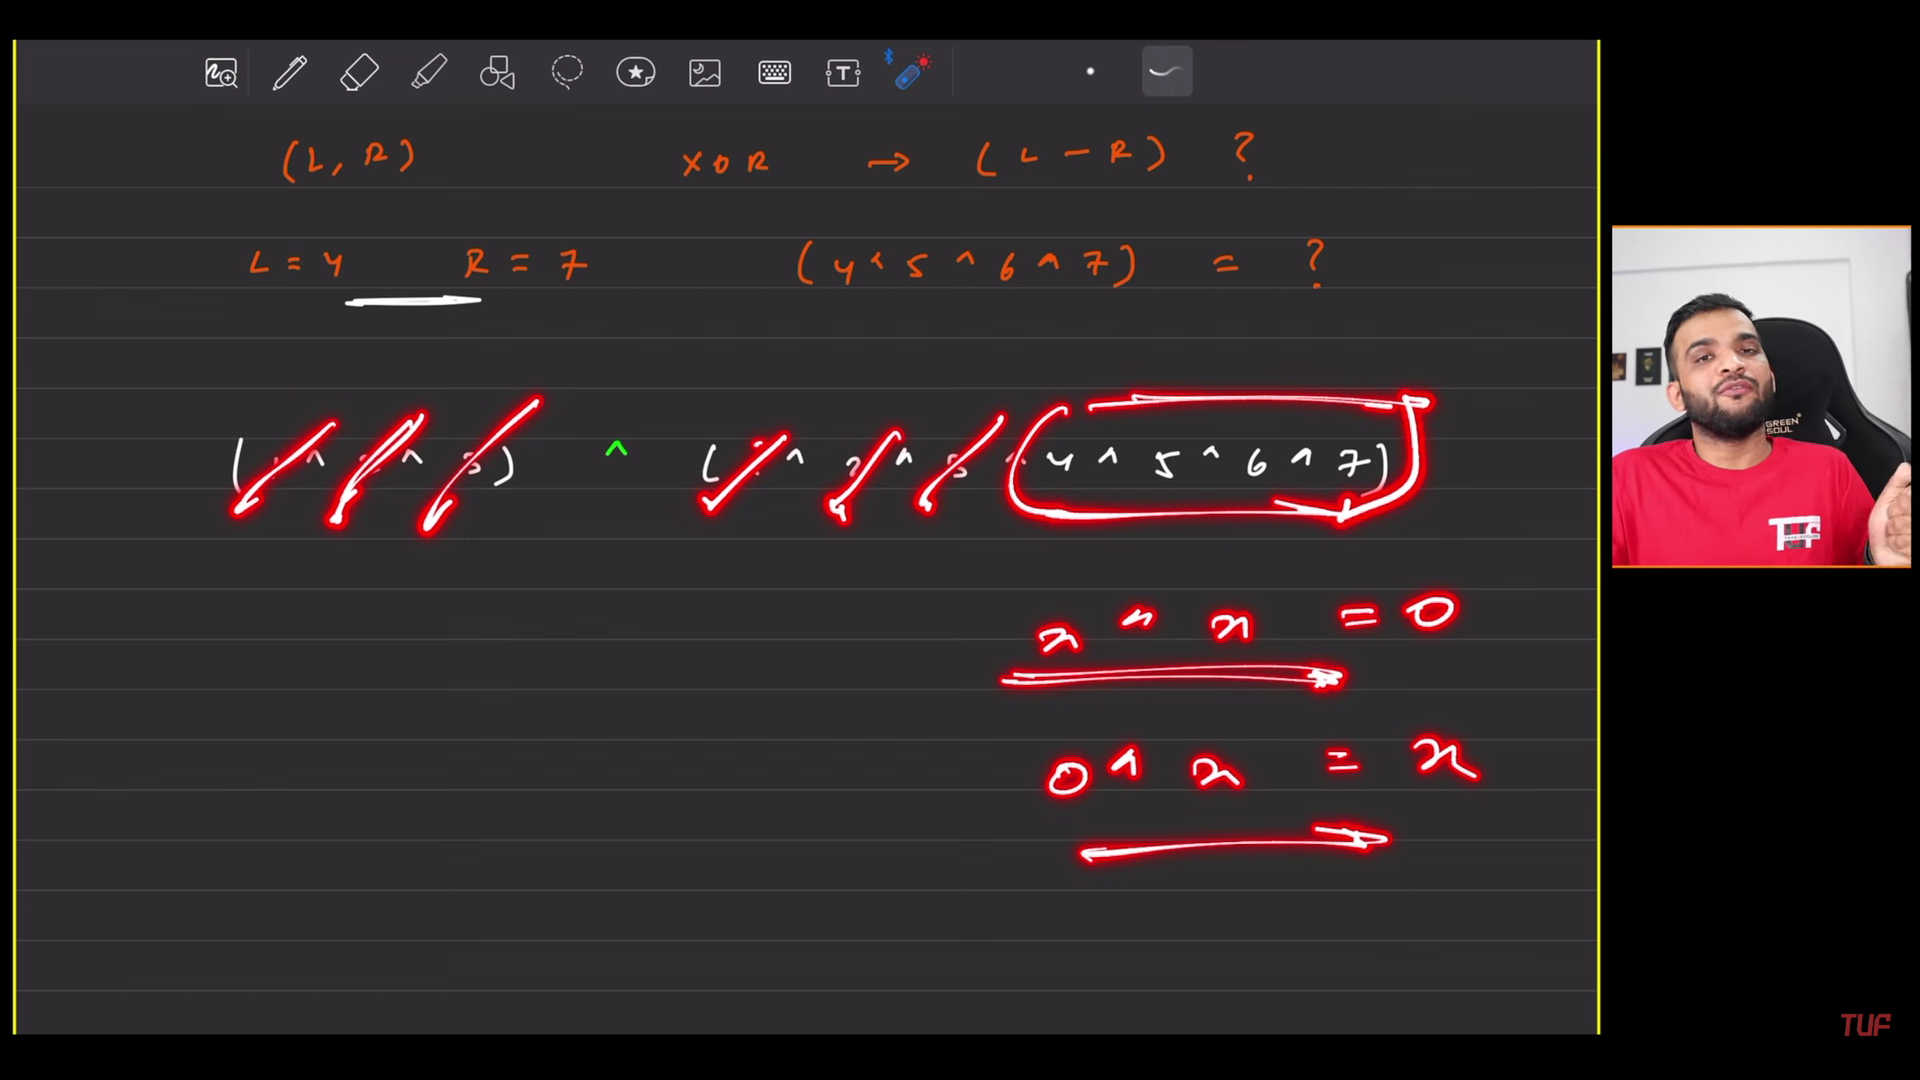 (L, R) XOR → (L - R) ?
L = 4 R = 7 (4 ^ 5 ^ 6 ^ 7) = ?
( ^ ^ 3) ^ ( ^ 2 ^ 3 ^ 4 ^ 5 ^ 6 ^ 7)
x ^ x = 0
0 ^ x = x
GREEN SOUL
TUF
TUF